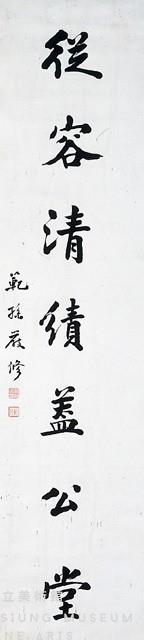 從容清績蓋公堂
範孫嚴修
立美術館
SIUNG MUSEUM
NE ARTS